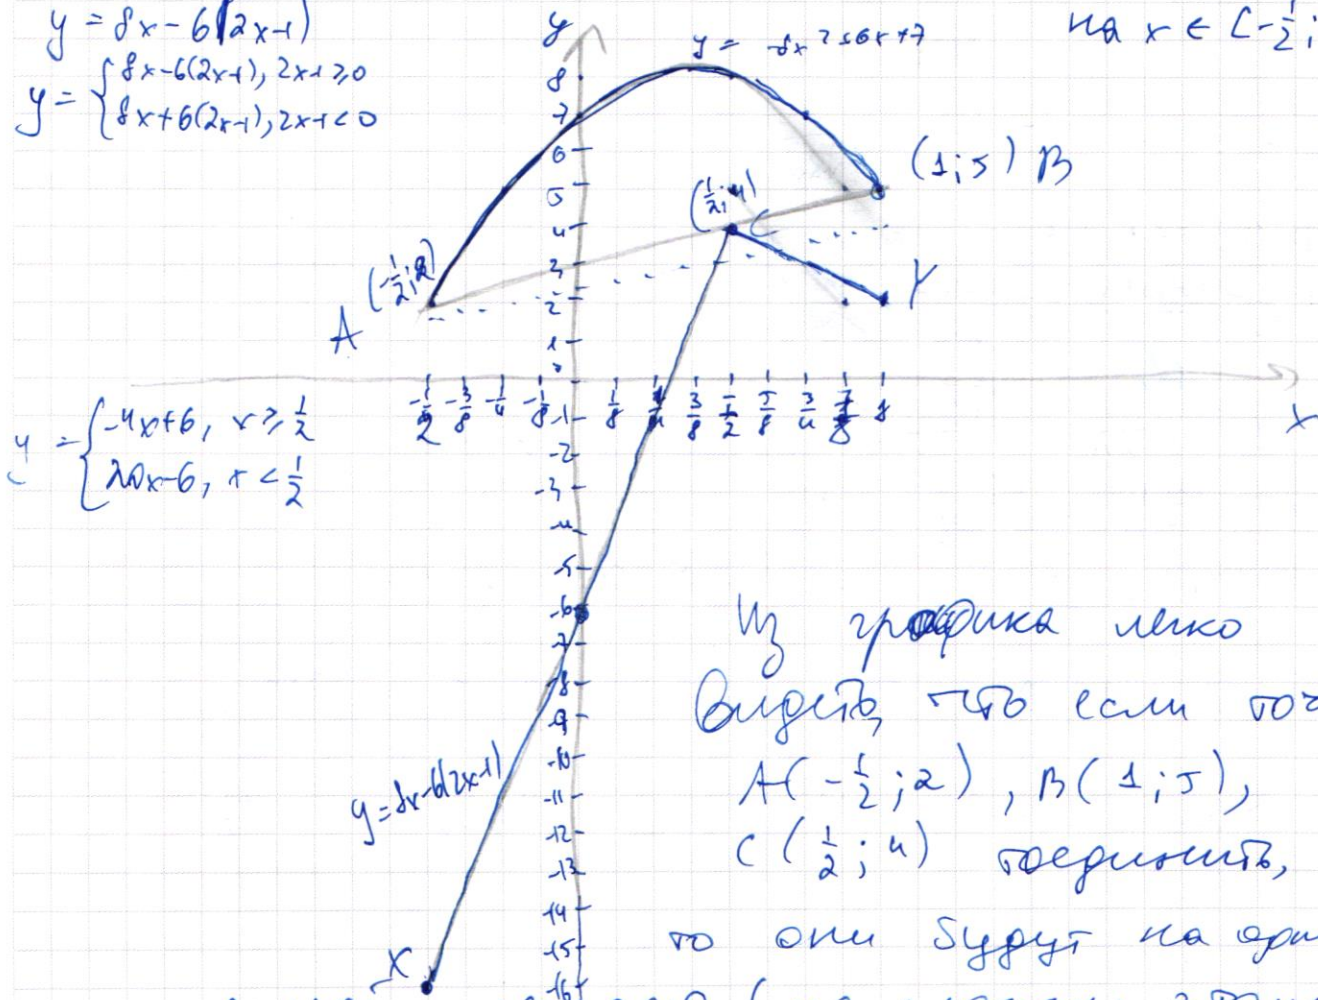 y = 8x - 6|2x-1|
y = { 8x-6(2x-1), 2x-1 ≥ 0
8x+6(2x-1), 2x-1 < 0
на x ∈ [-1/2;
y
(1;5) B
(1/2; 4) C
(-1/2; 2)
A
Y
8
7
6
5
4
3
2
1
-1/2 -3/8 -1/4 -1/8 1/8 1/4 3/8 1/2 5/8 3/4 7/8 1
x
-1
-2
-3
-4
-5
-6
-7
-8
-9
-10
-11
-12
-13
-14
-15
-16
y = { -4x+6, x ≥ 1/2
20x-6, x < 1/2
y=8x-6|2x-1|
X
Из графика легко
видеть, что если точ
A(-1/2; 2), B(1; 5),
C(1/2; 4) соединить,
то они будут на одн